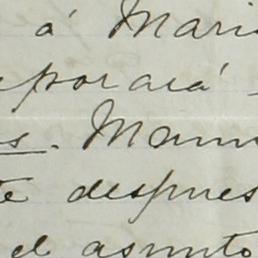 á Mari
porará
s. Mam
te despues
el asunto